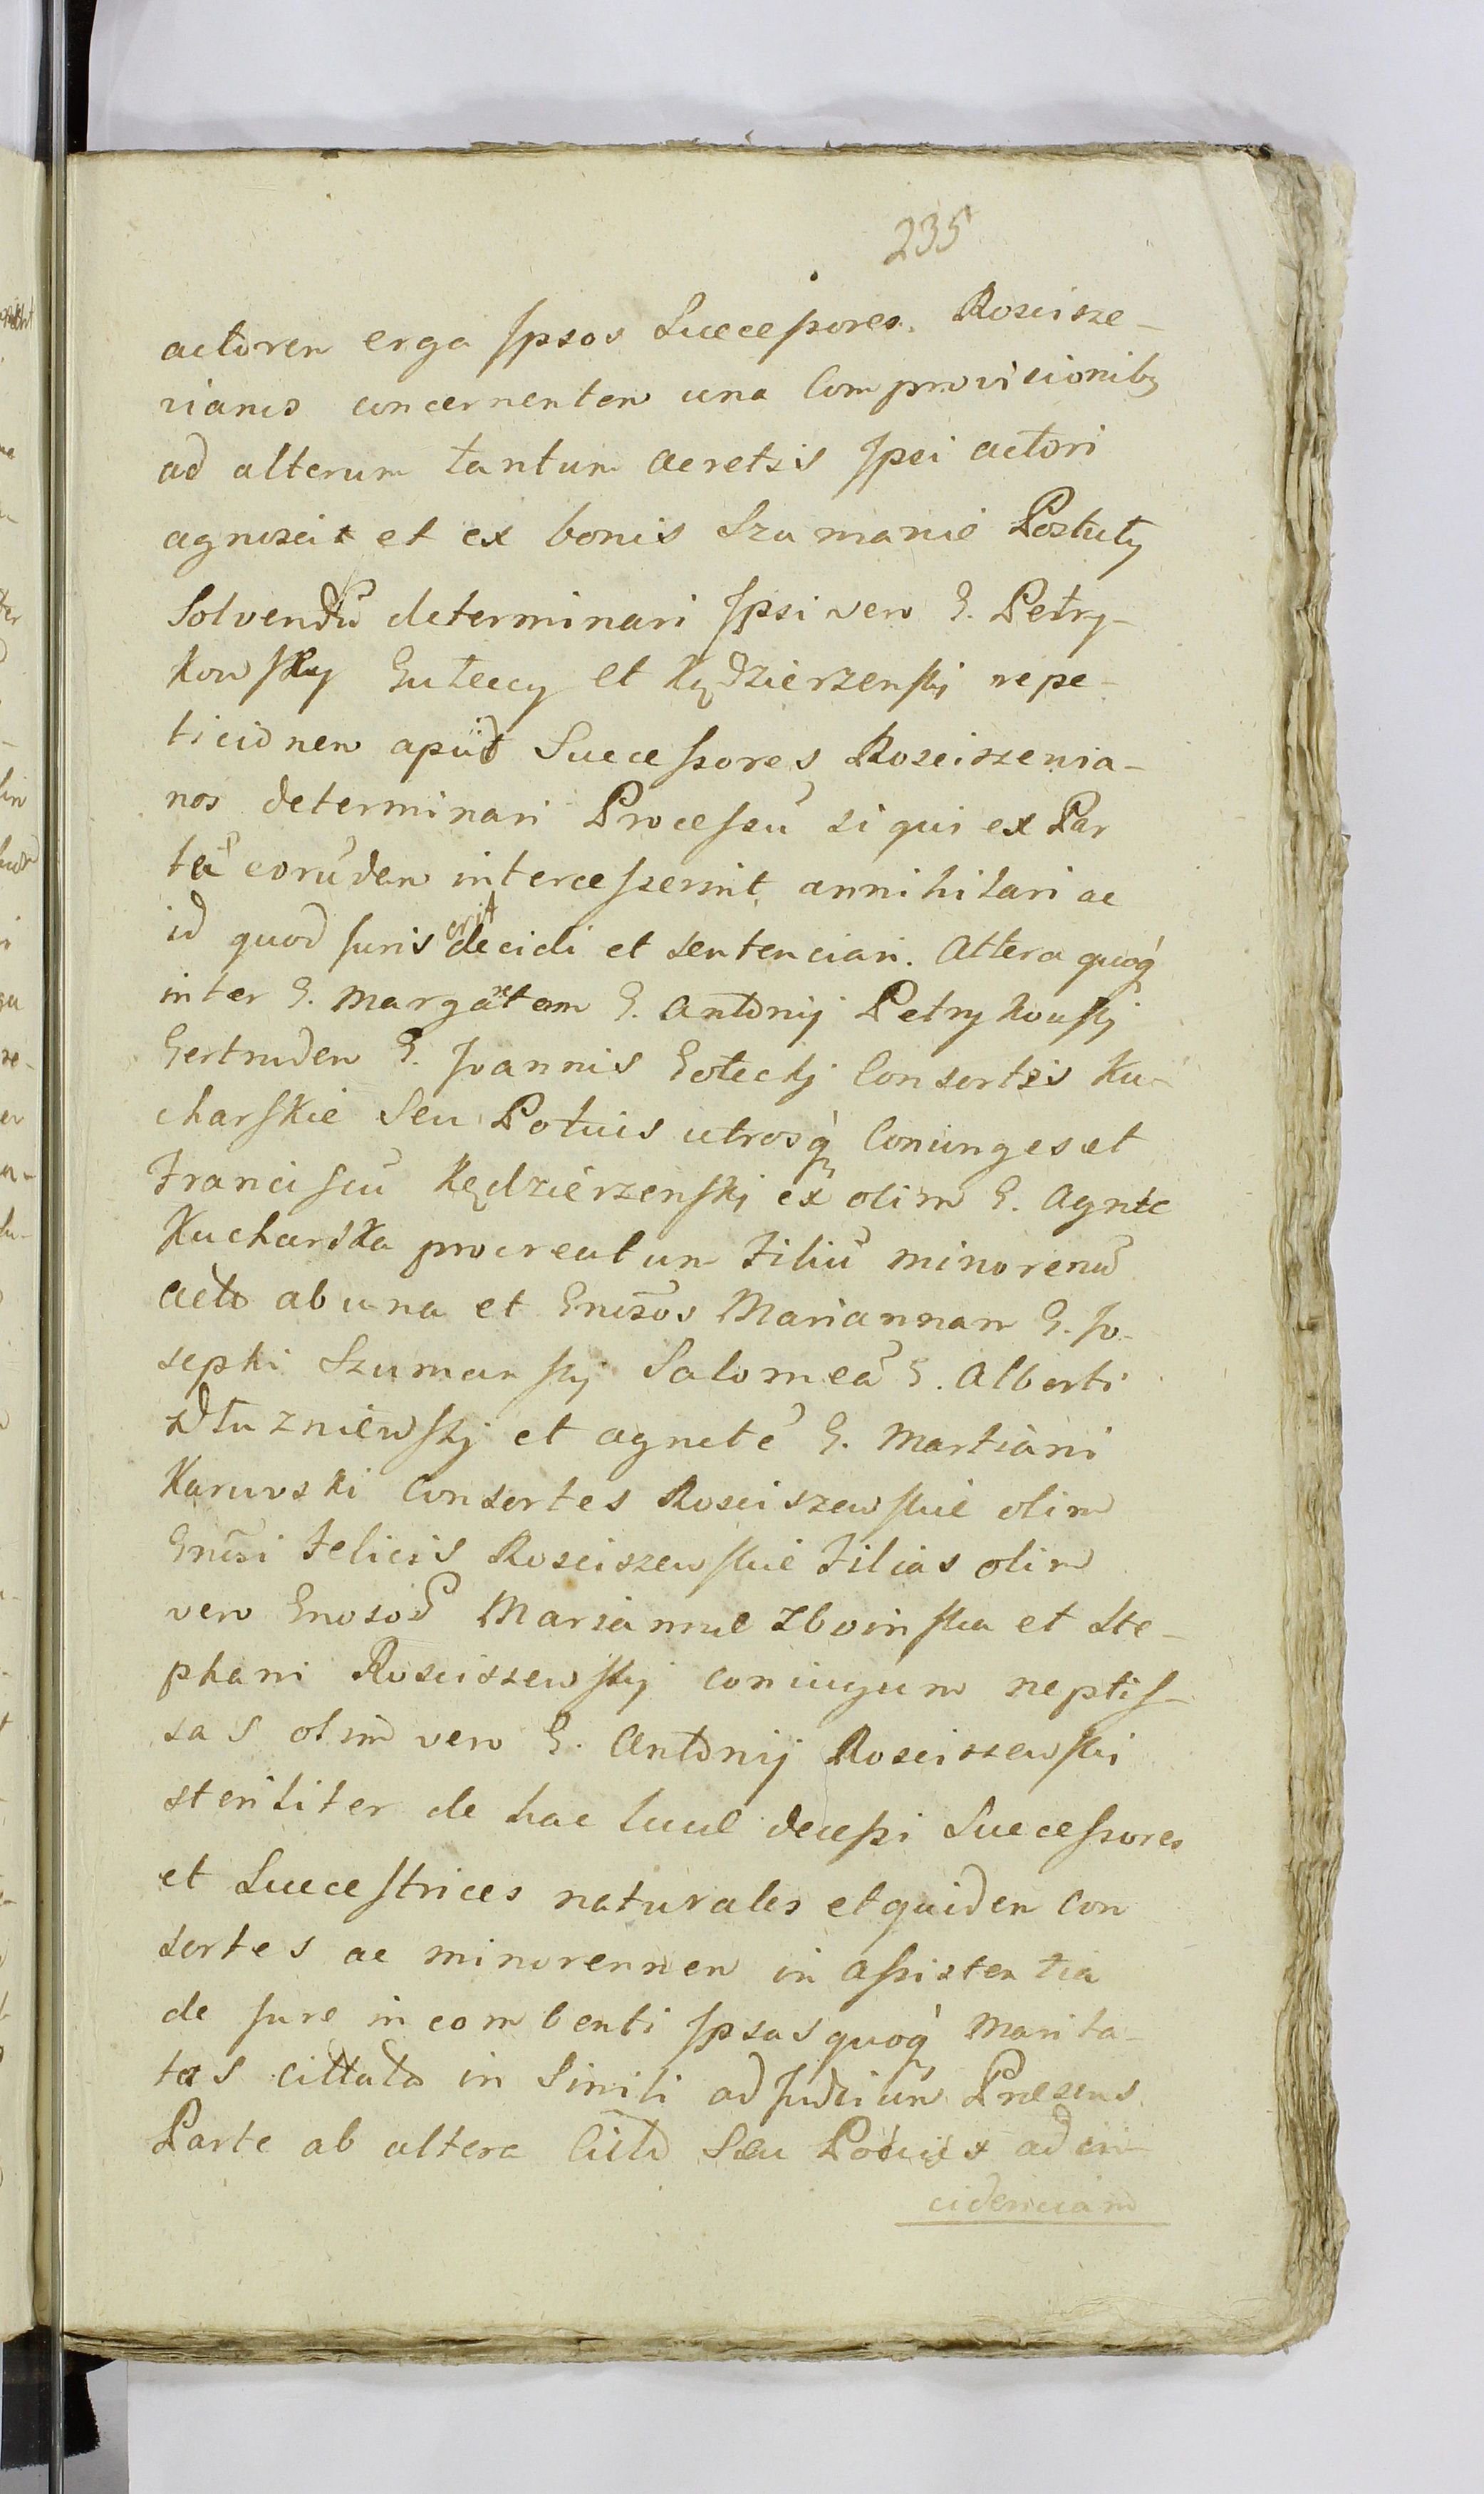 235
actorem erga Ipsos Successores. Rosisze-
vianos concernentem una Com provisionibq
ad alterum tantum acretis Ipsi actori
agnosci et ex bonis Szumanie Postuty
Solvendu determinari Ipsi vero G. Petry-
kowsky Goteccy et Kędzierzenskj repe-
ticionem apud Successores Rosciszewia-
nos determinari Processu si qui ex Par
te eorudem intercesserint annihilari ac
id quod Juris erit decidi et sentenciari. Altera quoq
inter G. Margaretam G. Antonij Petrykowskj
Gertrudem G. Joannis Goteckj Consortis Ku-
charskie Seu Potius utrosq Coniunges et
Franciscu Kędzierzenskj ex olim G. Agnete
Kucharska procreatum Filiu minorenu
acto ab una et Gnesos Mariannam G. Jo-
sephi Szumanskj Salomea G. Alberti
Dłuzniewskj et agnete G. Martiani
Karwoski Consortes Rosciszewskie olim
Gnesi Felicis Rosciszewskie Filias olim
vero Gnosod Marianne Zboinska et Ste-
phani Rosciszewskj coniugum neptis-
sas olim vero G. Antonij Rosciszewski
steriliter de hac luce decessi Successores
et Successtrices naturales et quidem Con
sortes ac minorennem in assistentia
de Jure incombenti Ipsas quoq Marita-
tas cittato in Simili ad Judicium Præsens
Parte ab altera Citto Seu Potius ad in-
cidenciam